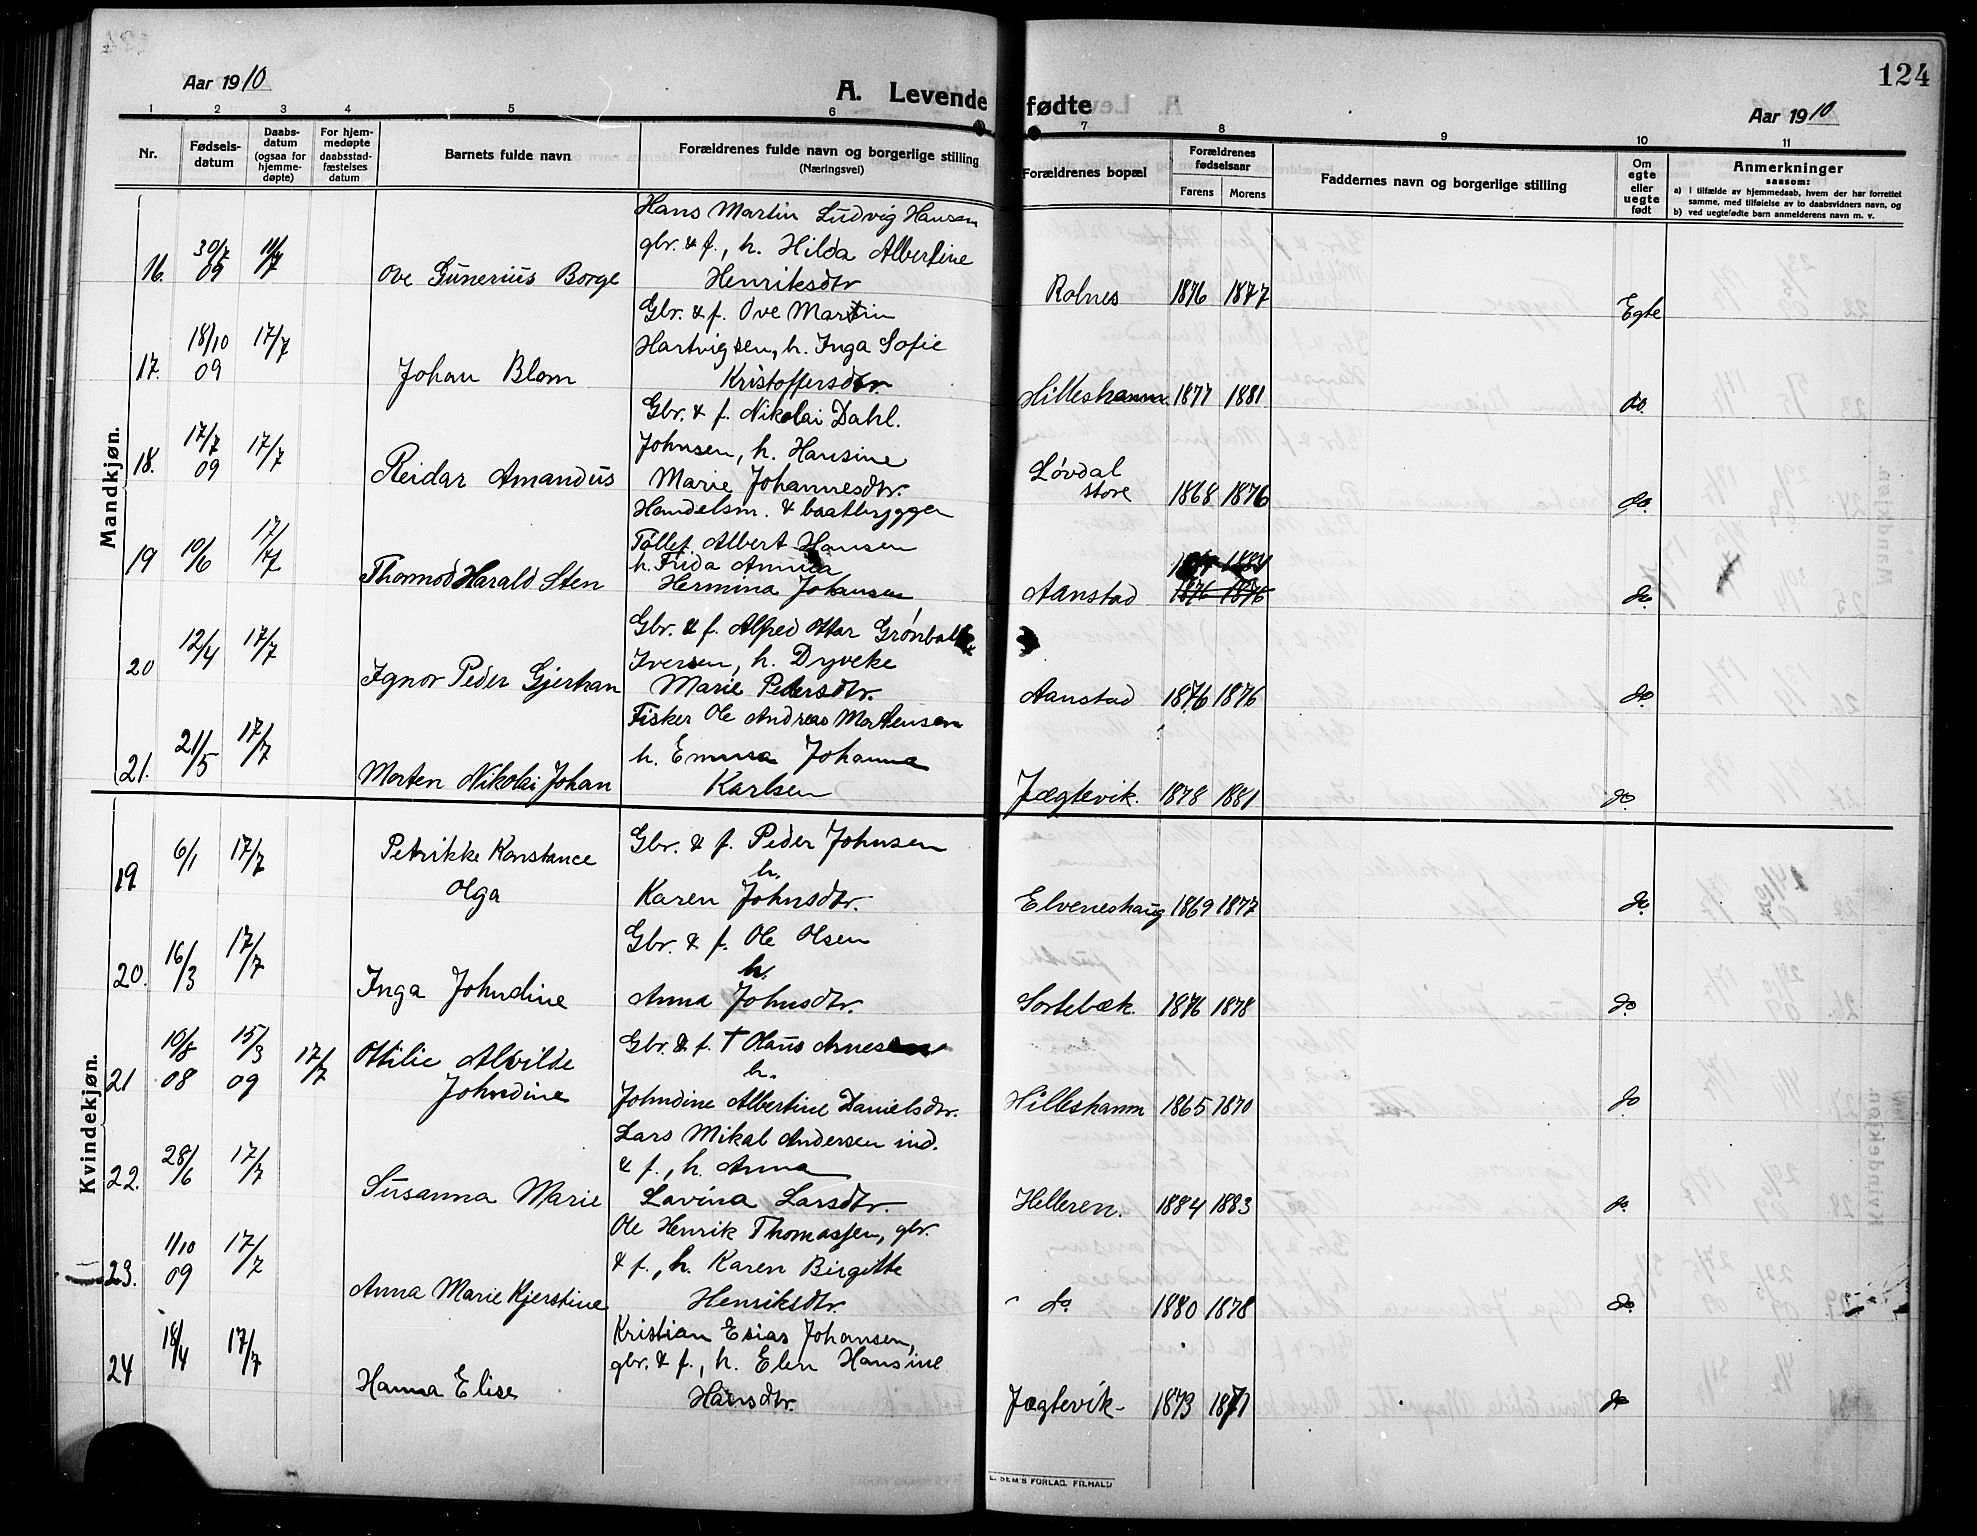 124
Aar 1910
A. Levende fødte
Aar 1910
1 2 3 4 5 6 7 8 9 10 11
Nr.
Fødsels-
datum
Daabs-
datum
(ogsaa for
hjemme-
døpte)
For hjem-
medøpte
daabsstad-
fæstelses
datum
Barnets fulde navn
Forældrenes fulde navn og borgerlige stilling
(Næringsvei)
Forældrenes bopæl
Forældrenes
fødselsaar
Farens Morens
Faddernes navn og borgerlige stilling
Om
egte
eller
uegte
født
Anmerkninger
saasom:
a) i tilfælde av hjemmedaab, hvem der har forrettet
samme, med tilføielse av to daabsvidners navn, og
b) ved uegtefødte barn anmelderens navn m. v.
Mandkjøn.
Hans Martin Ludvig Hansen
gbr. & f., h. Hilda Albertine
16. 30/7 09 Ove Gunerius Borge Henriksdtr Rolnes 1876 1877 Egte
Gbr. & f. Ove Martin
Hartvigsen, h. Inga Sofie
17. 18/10 09 17/7 Johan Blom Kristoffersdtr Hilleshamn 1877 1881 do.
Gbr. & f. Nikolai Dahl.
Johnsen, h. Hansine
18. 17/7 09 17/7 Reidar Amandus Marie Johannesdtr. Løvdal store 1868 1876 do.
Handelsm. & baatbygger
Tollef Albert Hansen
h. Frida Annea
19 10/6 17/7 Thormod Harald Sten Hermina Johansen Aanstad 1884 1876 1876 do.
Gbr. & f. Alfred Ottar
Iversen, h. Dyveke
20 12/4 17/7 Ignor Peder Gjerhan Marie Pedersdtr. Aanstad 1876 1876 do
Fisker Ole Andreas Mortensen
h. Emma Johanna
21. 21/5 17/7 Morten Nikolai Johan Karlsen Jægtevik. 1878 1881 do
Kvindekjøn.
Gbr. & f. Peder Johnsen
h.
19 6/1 17/7 Petrikke Konstance Olga Karen Johnsdtr. Elveneshaug 1869 1877 do.
Gbr. & f. Ole Olsen
h.
20. 16/3 17/7 Inga Johndine Anna Johnsdtr. Sortebæk. 1876 1878 do
Gbr. & f. † Olaus Arnesen
h.
21 10/8 08 15/3 09 17/7 Ottilie Alvilde Johndine Johndine Albertine Danielsdtr. Hilleshamn 1865 1870 do
Lars Mikal Andersen ind.
& f., h. Anna
22. 28/6 17/7 Susanna Marie Lavina Larsdtr. Helleren. 1884 1883 do.
Ole Henrik Thomassen, gbr.
& f., h. Karen Birgitte
23. 11/10 09 17/7 Anna Marie Kjerstine Henriksdtr. do. 1880 1878 do.
Kristian Esias Johansen,
gbr. & f., h. Elen Hansine
24 18/4 17/7 Hanna Elise Hansdtr. Jægtevik- 1873 1871 do
SEM'S FORLAG, FR.HALD